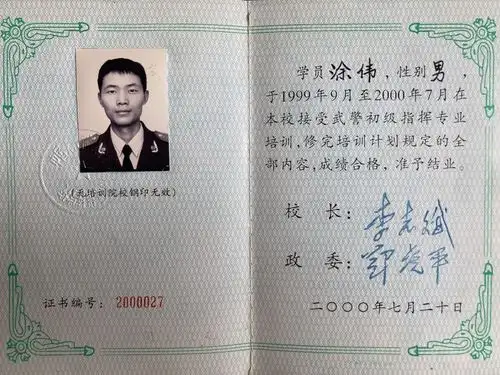 (无培训院校钢印无效)
证书编号: 2000027
学员涂伟,性别男,
于1999年9月至2000年7月在
本校接受武警初级指挥专业
培训,修完培训计划规定的全
部内容,成绩合格,准予结业。
校长:李志斌
政委:
二〇〇〇年七月二十日